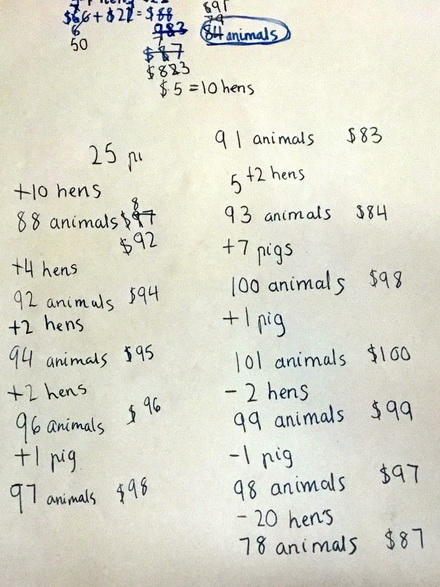 $66 + $22 = $88
6
50
983
$87
$883
$5 = 10 hens
891
79
84 animals
25 pi
+10 hens
88 animals $97
8
$92
+4 hens
92 animals $94
+2 hens
94 animals $95
+2 hens
96 animals $96
+1 pig
97 animals $98
91 animals $83
5 +2 hens
93 animals $84
+7 pigs
100 animals $98
+1 pig
101 animals $100
- 2 hens
99 animals $99
-1 pig
98 animals $97
- 20 hen's
78 animals $87